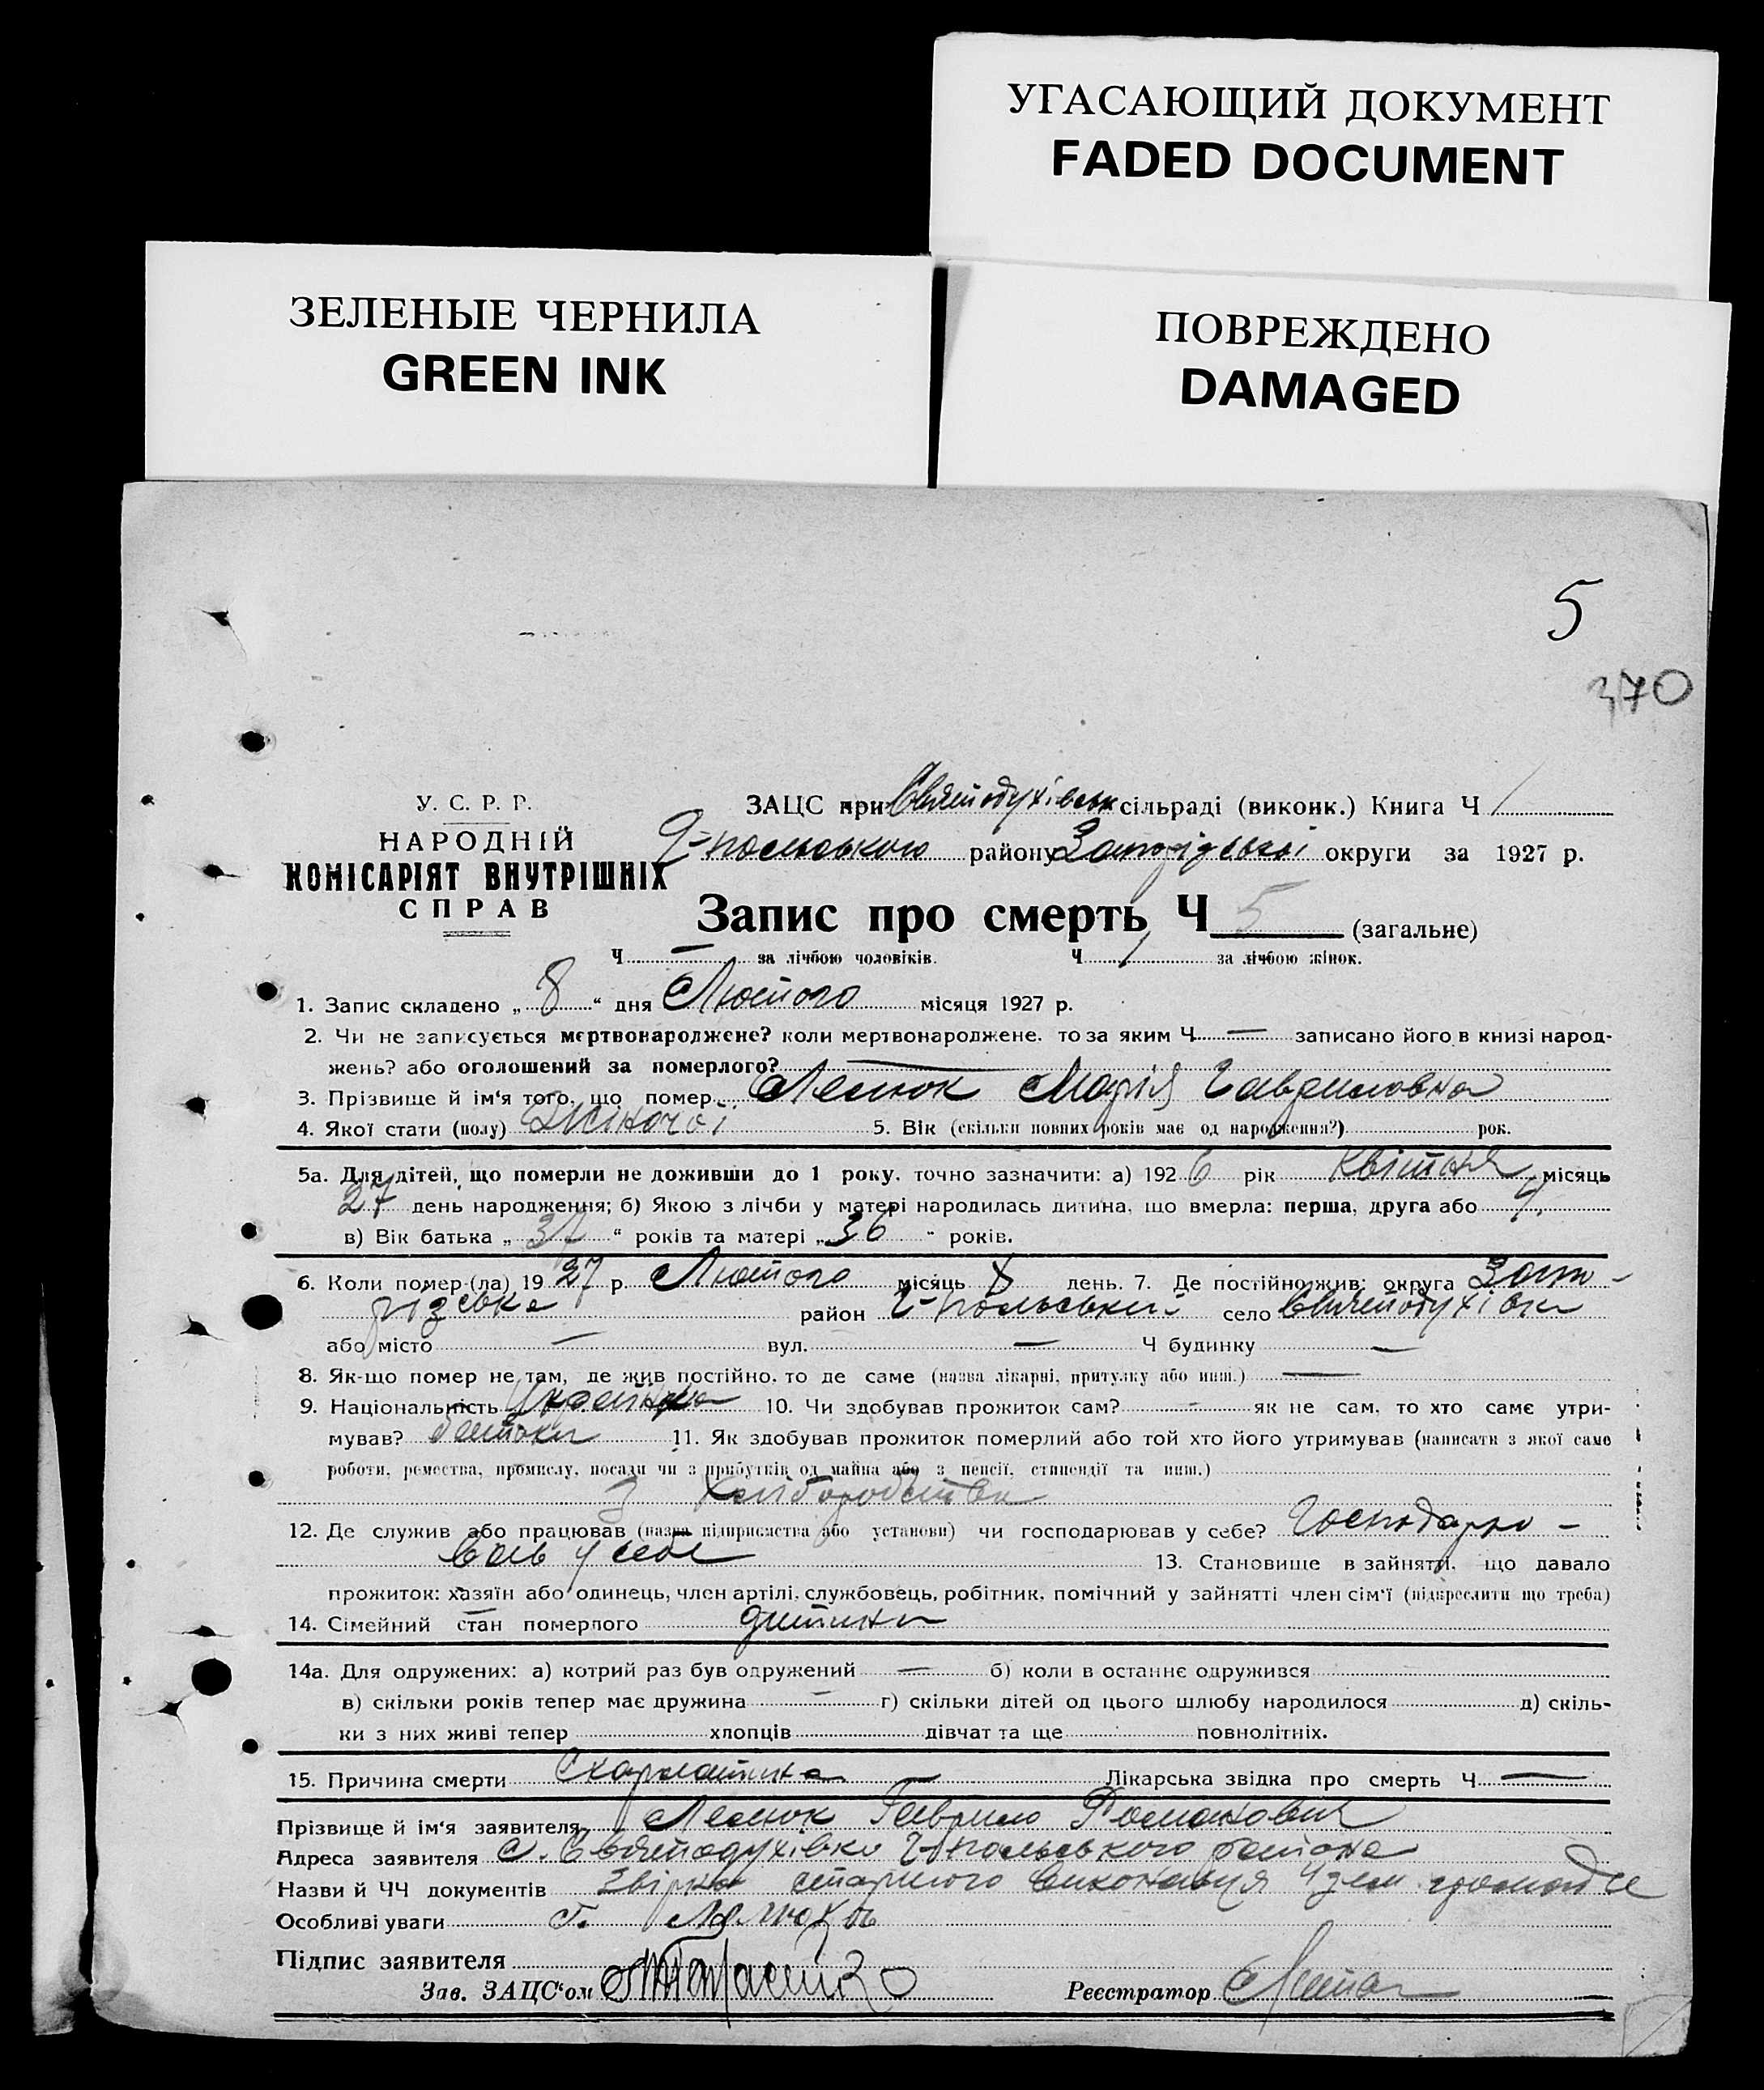 УГАСАЮЩИЙ ДОКУМЕНТ
FADED DOCUMENT
ЗЕЛЕНЫЕ ЧЕРНИЛА
GREEN INK
ПОВРЕЖДЕНО
DAMAGED
5
370
У. С. Р. Р.
НАРОДНІЙ
КОМІСАРІЯТ ВНУТРІШНІХ
СПРАВ
ЗАЦС при Святодухівськ сільраді (виконк.) Книга Ч 1
-польського району Запорізської округи за 1927 р.
Запис про смерть Ч 5 (загальне)
Ч — за лічбою чоловіків. Ч 1 за лічбою жінок.
1. Запис складено „ 8 “ дня Лютого місяця 1927 р.
2. Чи не записується мертвонароджене? коли мертвонароджене. то за яким Ч — записано його в книзі народ-
жень? або оголошений за померлого? —
3. Прізвище й ім‘я того, що помер Марія Гавриловна
4. Якої стати (полу) Жіночої 5. Вік (скільки повних років має од народження?) рок.
5а. Для дітей, що померли не доживши до 1 року. точно зазначити: а) 1926 рік Квітня місяць
27 день народження; б) Якою з лічби у матері народилась дитина, що вмерла: перша, друга або 4.
в) Вік батька „ 37 “ років та матері „ 36 “ років.
6. Коли помер (ла) 1927 р. Лютого місяць день. 7. Де постійно жив: округа Запо-
різська район -польський село Святодухівка
або місто — вул. — Ч будинку —
8. Як-що помер не там, де жив постійно. то де саме (назва лікарні, притулку або инш.) —
9. Національність Українка 10. Чи здобував прожиток сам? - як не сам, то хто саме утри-
мував? Батьки 11. Як здобував прожиток померлий або той хто його утримував (написати з якої саме
роботи, ремества, промислу, посади чи з прибутків од майна або з пенсії, стипендії та инш.)
З Хліборобства
12. Де служив або працював (назва підприємства або установи) чи господарював у себе? Господарю-
вав у себе 13. Становище в зайнятті, що давало
прожиток: хазяїн або одинець, член артілі, службовець, робітник, помічний у зайнятті член сім‘ї (підкреслити що треба)
14. Сімейний стан померлого дитина
14а. Для одружених: а) котрий раз був одружений — б) коли в останнє одружився
в) скільки років тепер має дружина — г) скільки дітей од цього шлюбу народилося д) скіль-
ки з них живі тепер хлопців дівчат та ще повнолітніх.
15. Причина смерти Скарлатина Лікарська звідка про смерть Ч —
Прізвище й ім‘я заявителя Гаврило Романович
Адреса заявителя с. Святодухівка -польського району
Назви й ЧЧ документів старшого виконавця
Особливі уваги
Підпис заявителя
Зав. ЗАЦС‘ом
Реєстратор